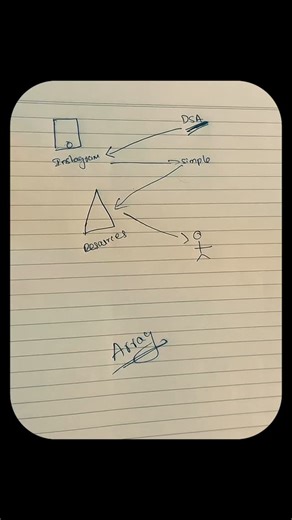 DSA
Instagram
simple
Resources
Array